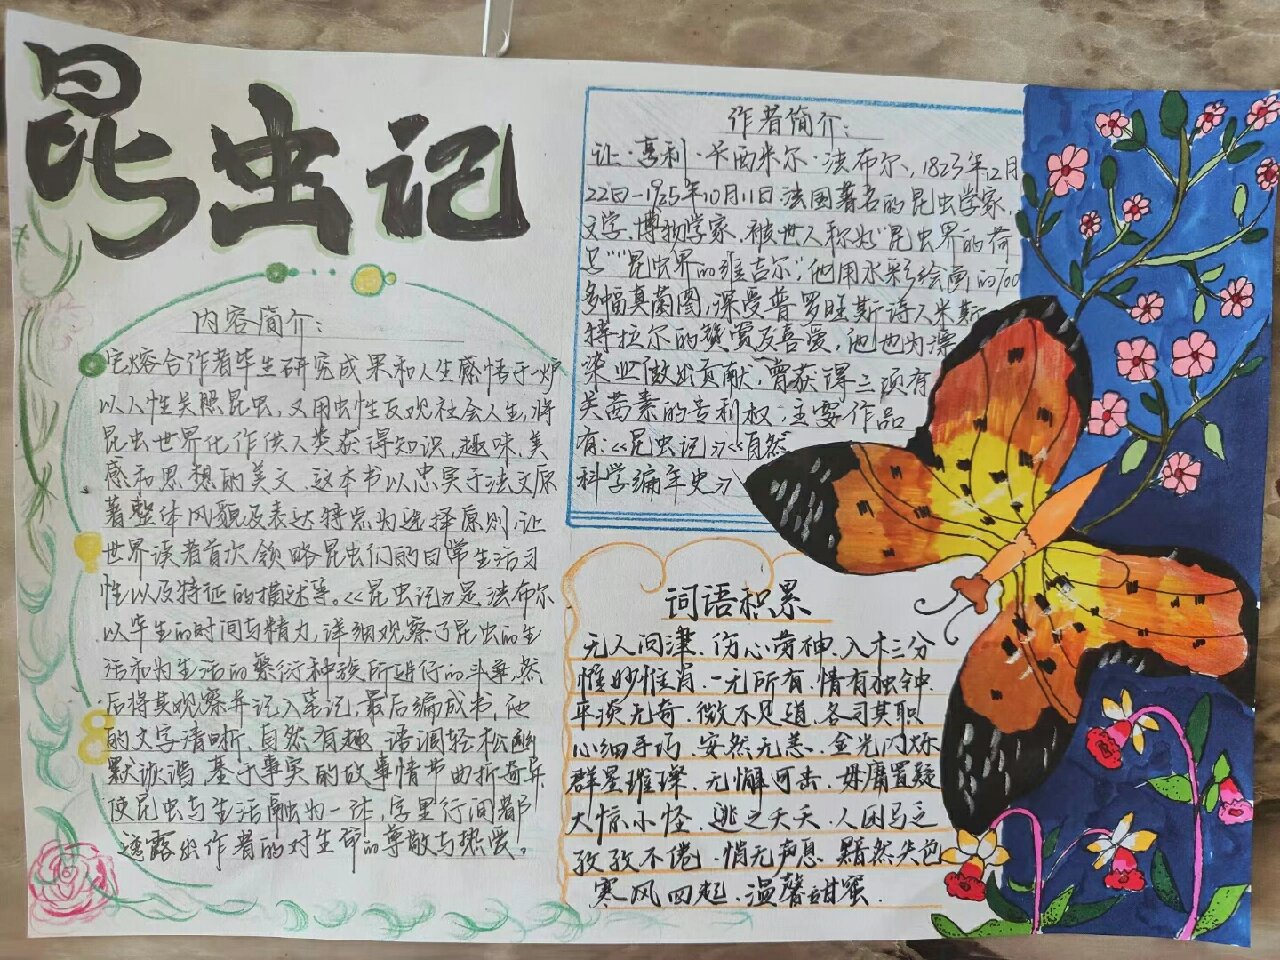 昆虫记
内容简介：
它熔合作者毕生研究成果和人生感悟于一炉
以人性关照昆虫，又用虫性反观社会人生，将
昆虫世界化作供人类获得知识、趣味、美
感和思想的美文。这本书以忠实于法文原
著整体风貌及表达特点为选择原则，让
世界读者首次领略昆虫们的日常生活习
性以及特征的描述等。《昆虫记》是法布尔
以毕生的时间与精力，详细观察了昆虫的生
活和为生活的繁衍种族所进行的斗争，然
后将其观察并记入笔记，最后编成书，他
的文字清晰，自然有趣，语调轻松幽
默诙谐，基于事实的故事情节曲折奇兵
使昆虫与生活融为一体，字里行间都
透露给作者的对生命的尊敬与热爱。
作者简介：
让·亨利·卡西米尔·法布尔，1823年12月
22日-1925年10月11日法国著名的昆虫学家，
文学、博物学家，被世人称为“昆虫界的荷
马”“昆虫界的维吉尔”他用水彩绘画的700
多幅真菌图，深受普罗旺斯诗人米斯
特拉尔的赞赏及喜爱，他也为漂
染业做出贡献，曾获得三项有
关茜素的专利权，主要作品
有：《昆虫记》《自然
科学编年史》
词语积累
无人问津、伤心劳神、入木三分
惟妙惟肖、一无所有、情有独钟
平淡无奇、微不足道、各司其职
心细手巧、安然无恙、金光闪烁
群星璀璨、无懈可击、毋庸置疑
大惊小怪、逃之夭夭、人困马乏
孜孜不倦、悄无声息、黯然失色
寒风四起、温馨甜蜜